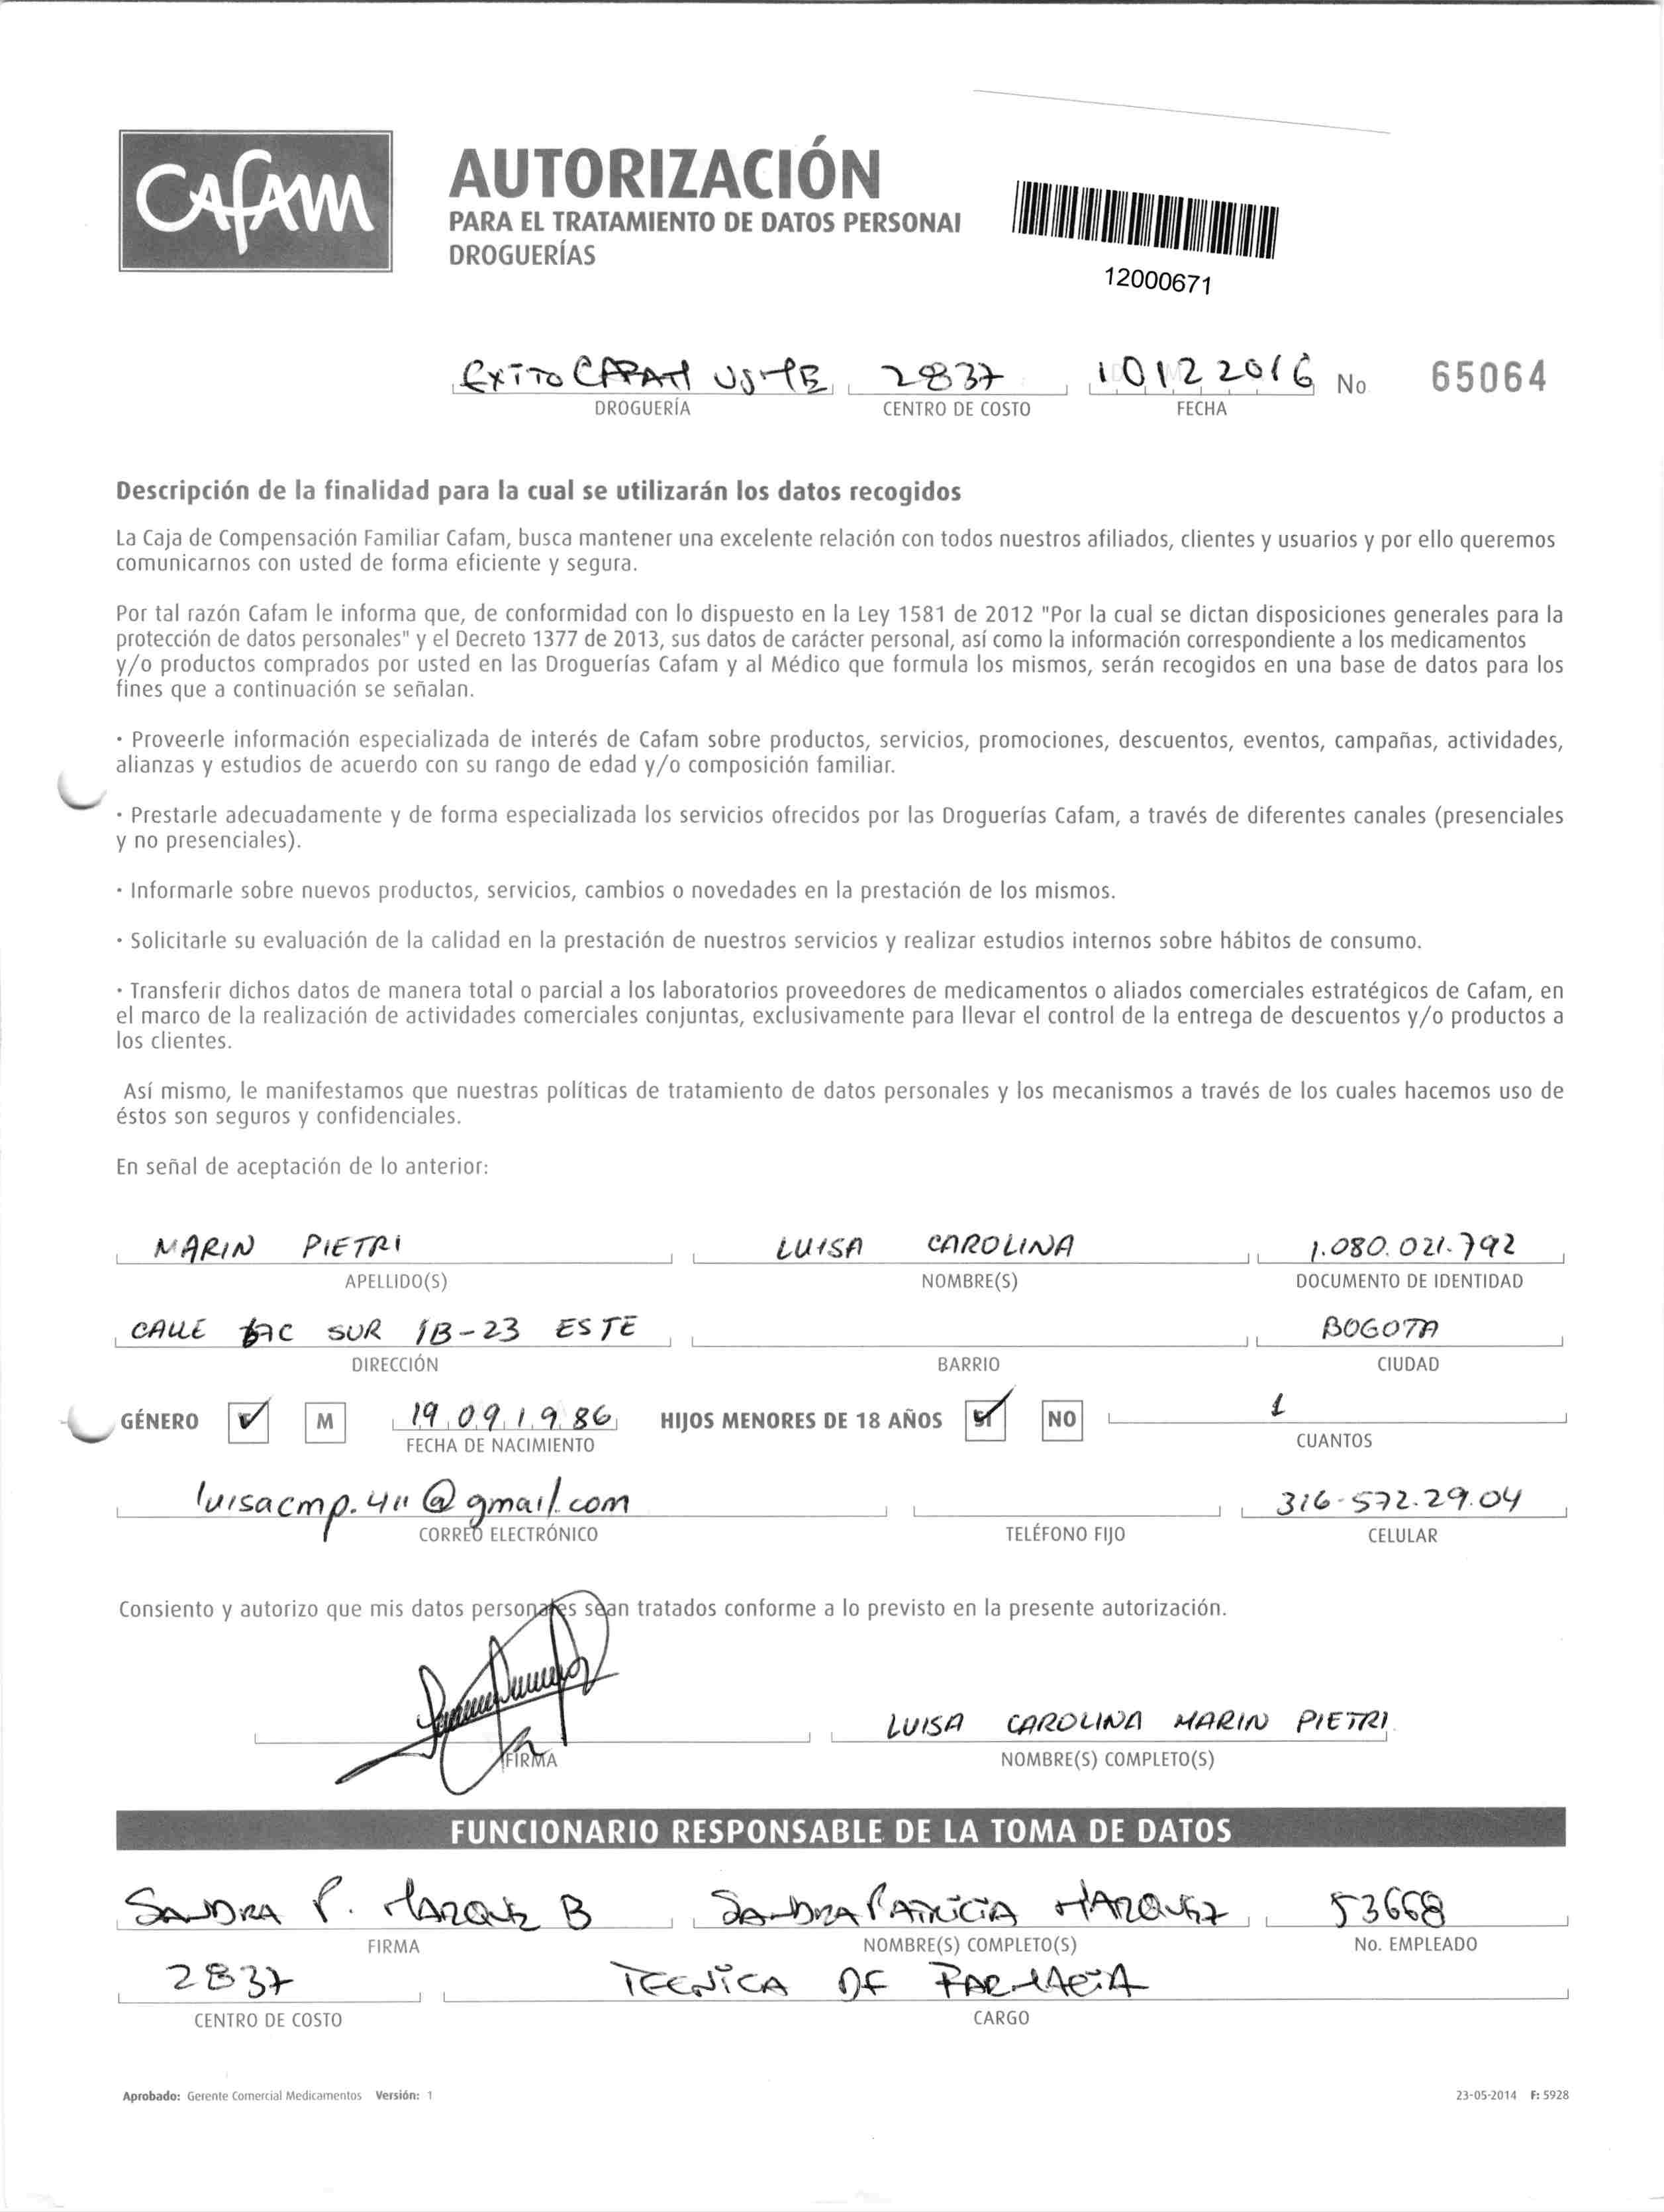 CAFAM
AUTORIZACIÓN
PARA EL TRATAMIENTO DE DATOS PERSONAI
DROGUERÍAS
12000671
EXITO CAFAM USME 2837 10 12 2016 No 65064
DROGUERÍA CENTRO DE COSTO FECHA
Descripción de la finalidad para la cual se utilizarán los datos recogidos
La Caja de Compensación Familiar Cafam, busca mantener una excelente relación con todos nuestros afiliados, clientes y usuarios y por ello queremos
comunicarnos con usted de forma eficiente y segura.
Por tal razón Cafam le informa que, de conformidad con lo dispuesto en la Ley 1581 de 2012 "Por la cual se dictan disposiciones generales para la
protección de datos personales" y el Decreto 1377 de 2013, sus datos de carácter personal, así como la información correspondiente a los medicamentos
y/o productos comprados por usted en las Droguerías Cafam y al Médico que formula los mismos, serán recogidos en una base de datos para los
fines que a continuación se señalan.
· Proveerle información especializada de interés de Cafam sobre productos, servicios, promociones, descuentos, eventos, campañas, actividades,
alianzas y estudios de acuerdo con su rango de edad y/o composición familiar.
· Prestarle adecuadamente y de forma especializada los servicios ofrecidos por las Droguerías Cafam, a través de diferentes canales (presenciales
y no presenciales).
· Informarle sobre nuevos productos, servicios, cambios o novedades en la prestación de los mismos.
· Solicitarle su evaluación de la calidad en la prestación de nuestros servicios y realizar estudios internos sobre hábitos de consumo.
· Transferir dichos datos de manera total o parcial a los laboratorios proveedores de medicamentos o aliados comerciales estratégicos de Cafam, en
el marco de la realización de actividades comerciales conjuntas, exclusivamente para llevar el control de la entrega de descuentos y/o productos a
los clientes.
Así mismo, le manifestamos que nuestras políticas de tratamiento de datos personales y los mecanismos a través de los cuales hacemos uso de
éstos son seguros y confidenciales.
En señal de aceptación de lo anterior:
MARIN PIETRI LUISA CAROLINA 1.080.021.792
APELLIDO(S) NOMBRE(S) DOCUMENTO DE IDENTIDAD
CALLE SUR 1B-23 ESTE BOGOTA
DIRECCIÓN BARRIO CIUDAD
GÉNERO F M 19 09 1986 HIJOS MENORES DE 18 AÑOS SI NO 1
FECHA DE NACIMIENTO CUANTOS
luisacmp.411@gmail.com 316-572.29.04
CORREO ELECTRÓNICO TELÉFONO FIJO CELULAR
Consiento y autorizo que mis datos personales sean tratados conforme a lo previsto en la presente autorización.
LUISA CAROLINA MARIN PIETRI
FIRMA NOMBRE(S) COMPLETO(S)
FUNCIONARIO RESPONSABLE DE LA TOMA DE DATOS
SANDRA P. MARQUEZ B SANDRA PATRICIA MARQUEZ 53668
FIRMA NOMBRE(S) COMPLETO(S) No. EMPLEADO
2837 TECNICA DE FARMACIA
CENTRO DE COSTO CARGO
Aprobado: Gerente Comercial Medicamentos Versión: 1 23-05-2014 F: 5928